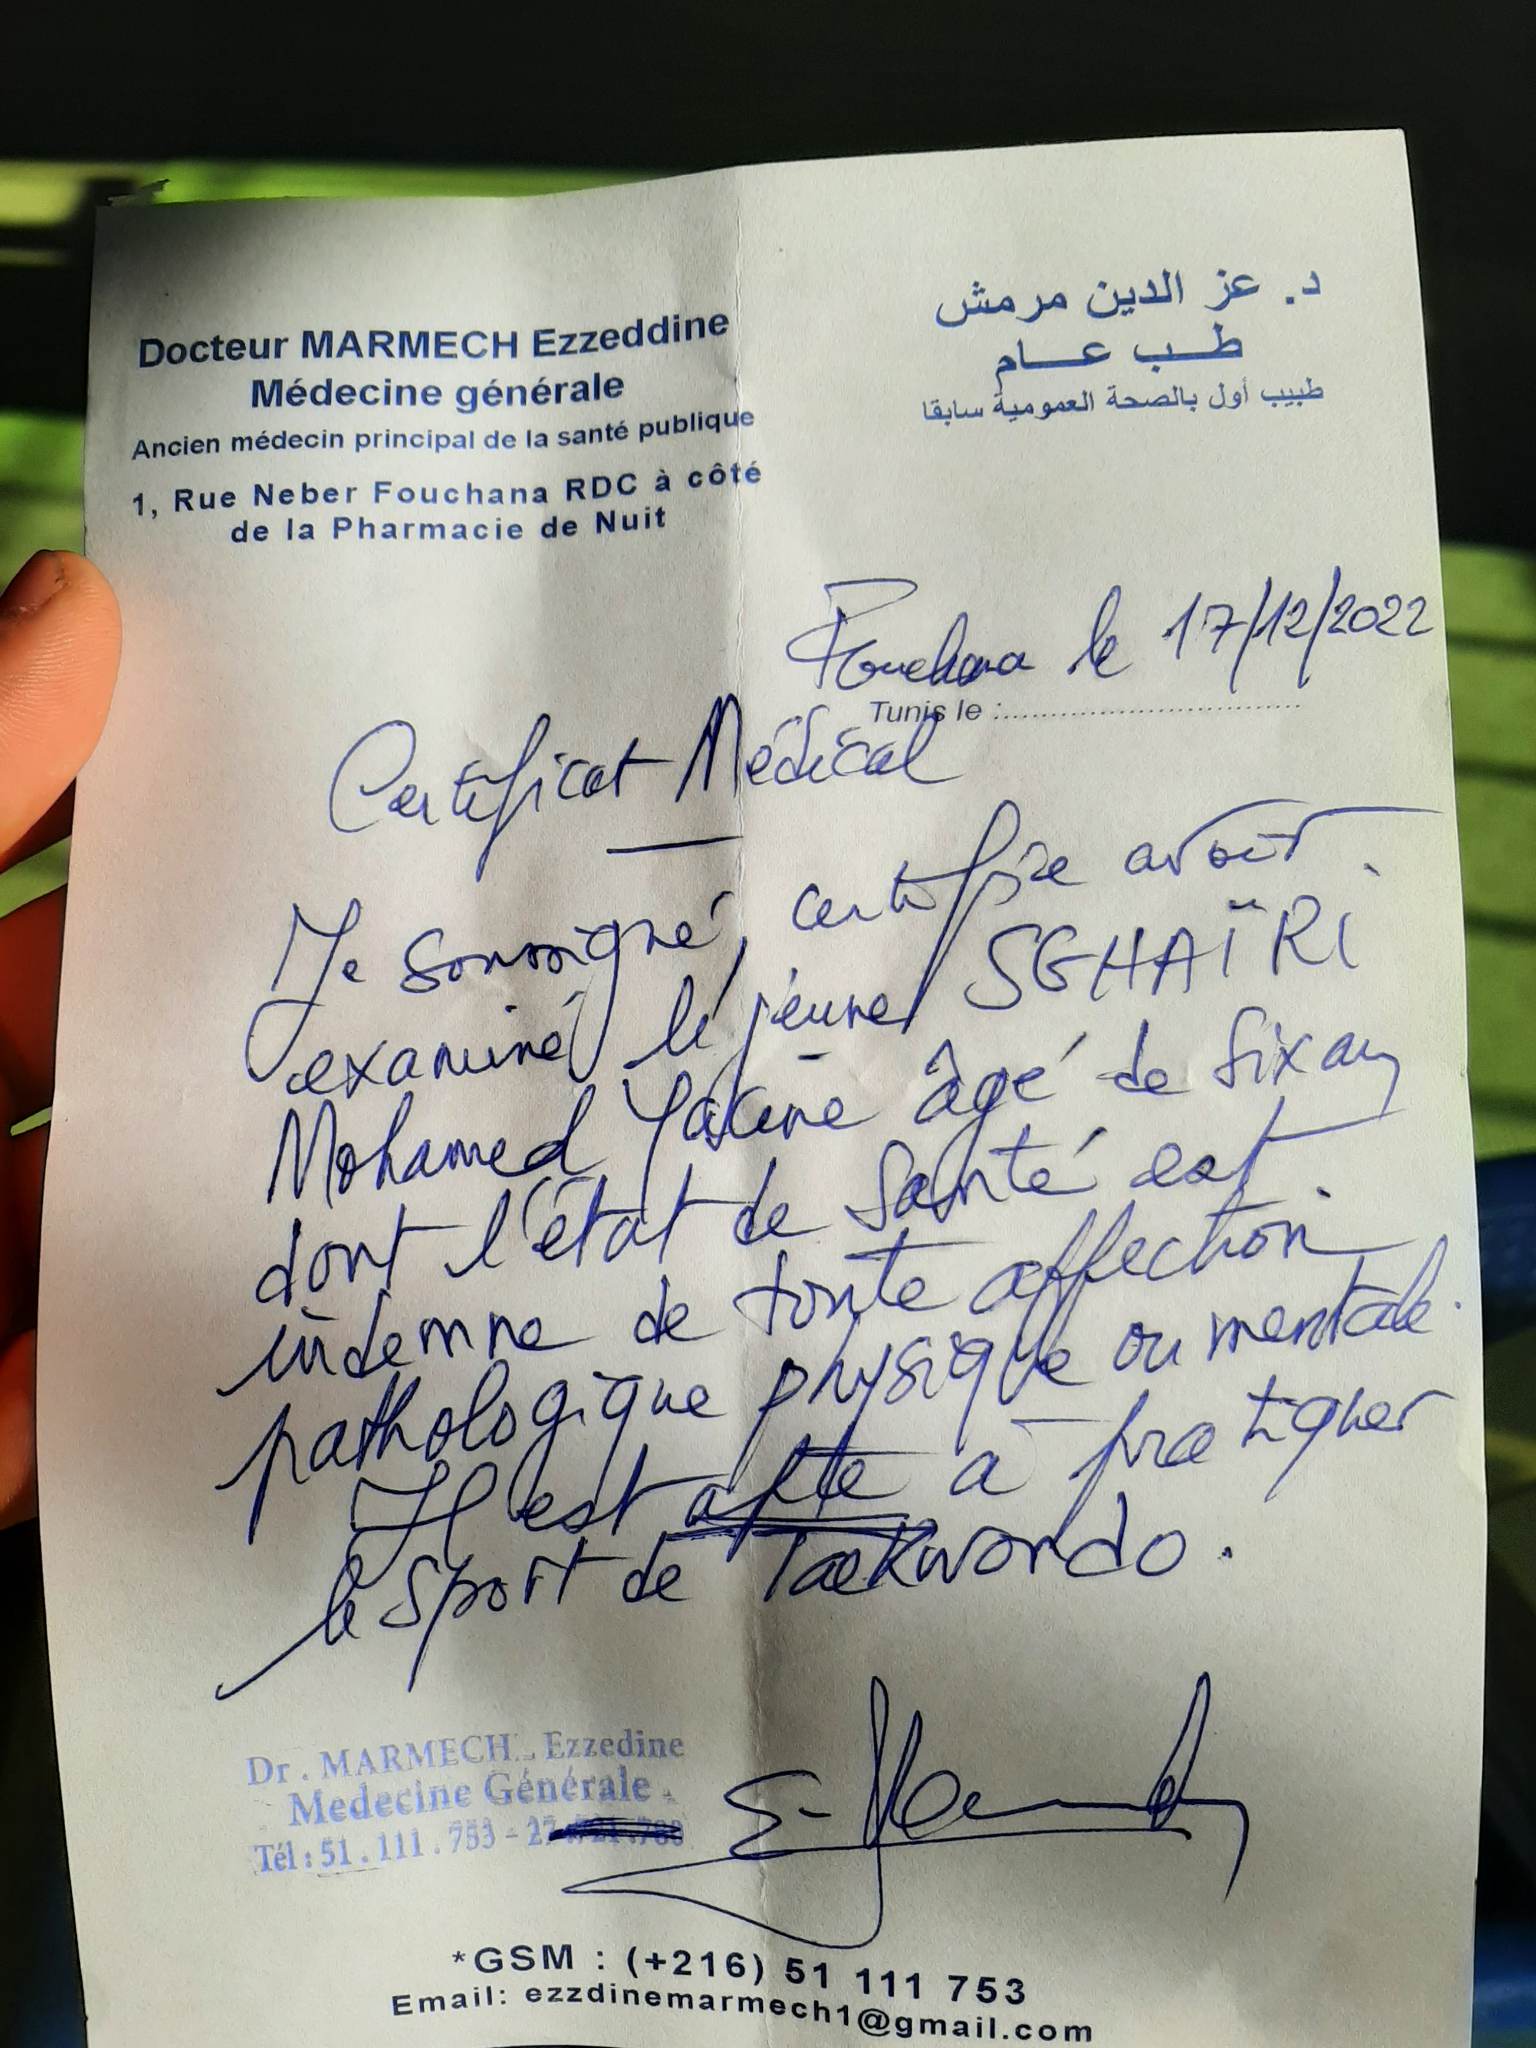 Docteur MARMECH Ezzeddine
Médecine générale
Ancien médecin principal de la santé publique
1, Rue Neber Fouchana RDC à côté
de la Pharmacie de Nuit
د. عز الدين مرمش
طب عام
طبيب أول بالصحة العمومية سابقا
Fouchana le 17/12/2022
Tunis le :
Certificat Médical
Je soussigné, certifie avoir
examiné le jeune SGHAÏRI
Mohamed Yacine âgé de six ans
dont l'état de santé est
indemne de toute affection
pathologique physique ou mentale.
Il est apte à pratiquer
le sport de Taekwondo.
Dr. MARMECH Ezzedine
Medecine Générale
Tél : 51.111.753 - 27
*GSM : (+216) 51 111 753
Email: ezzdinemarmech1@gmail.com